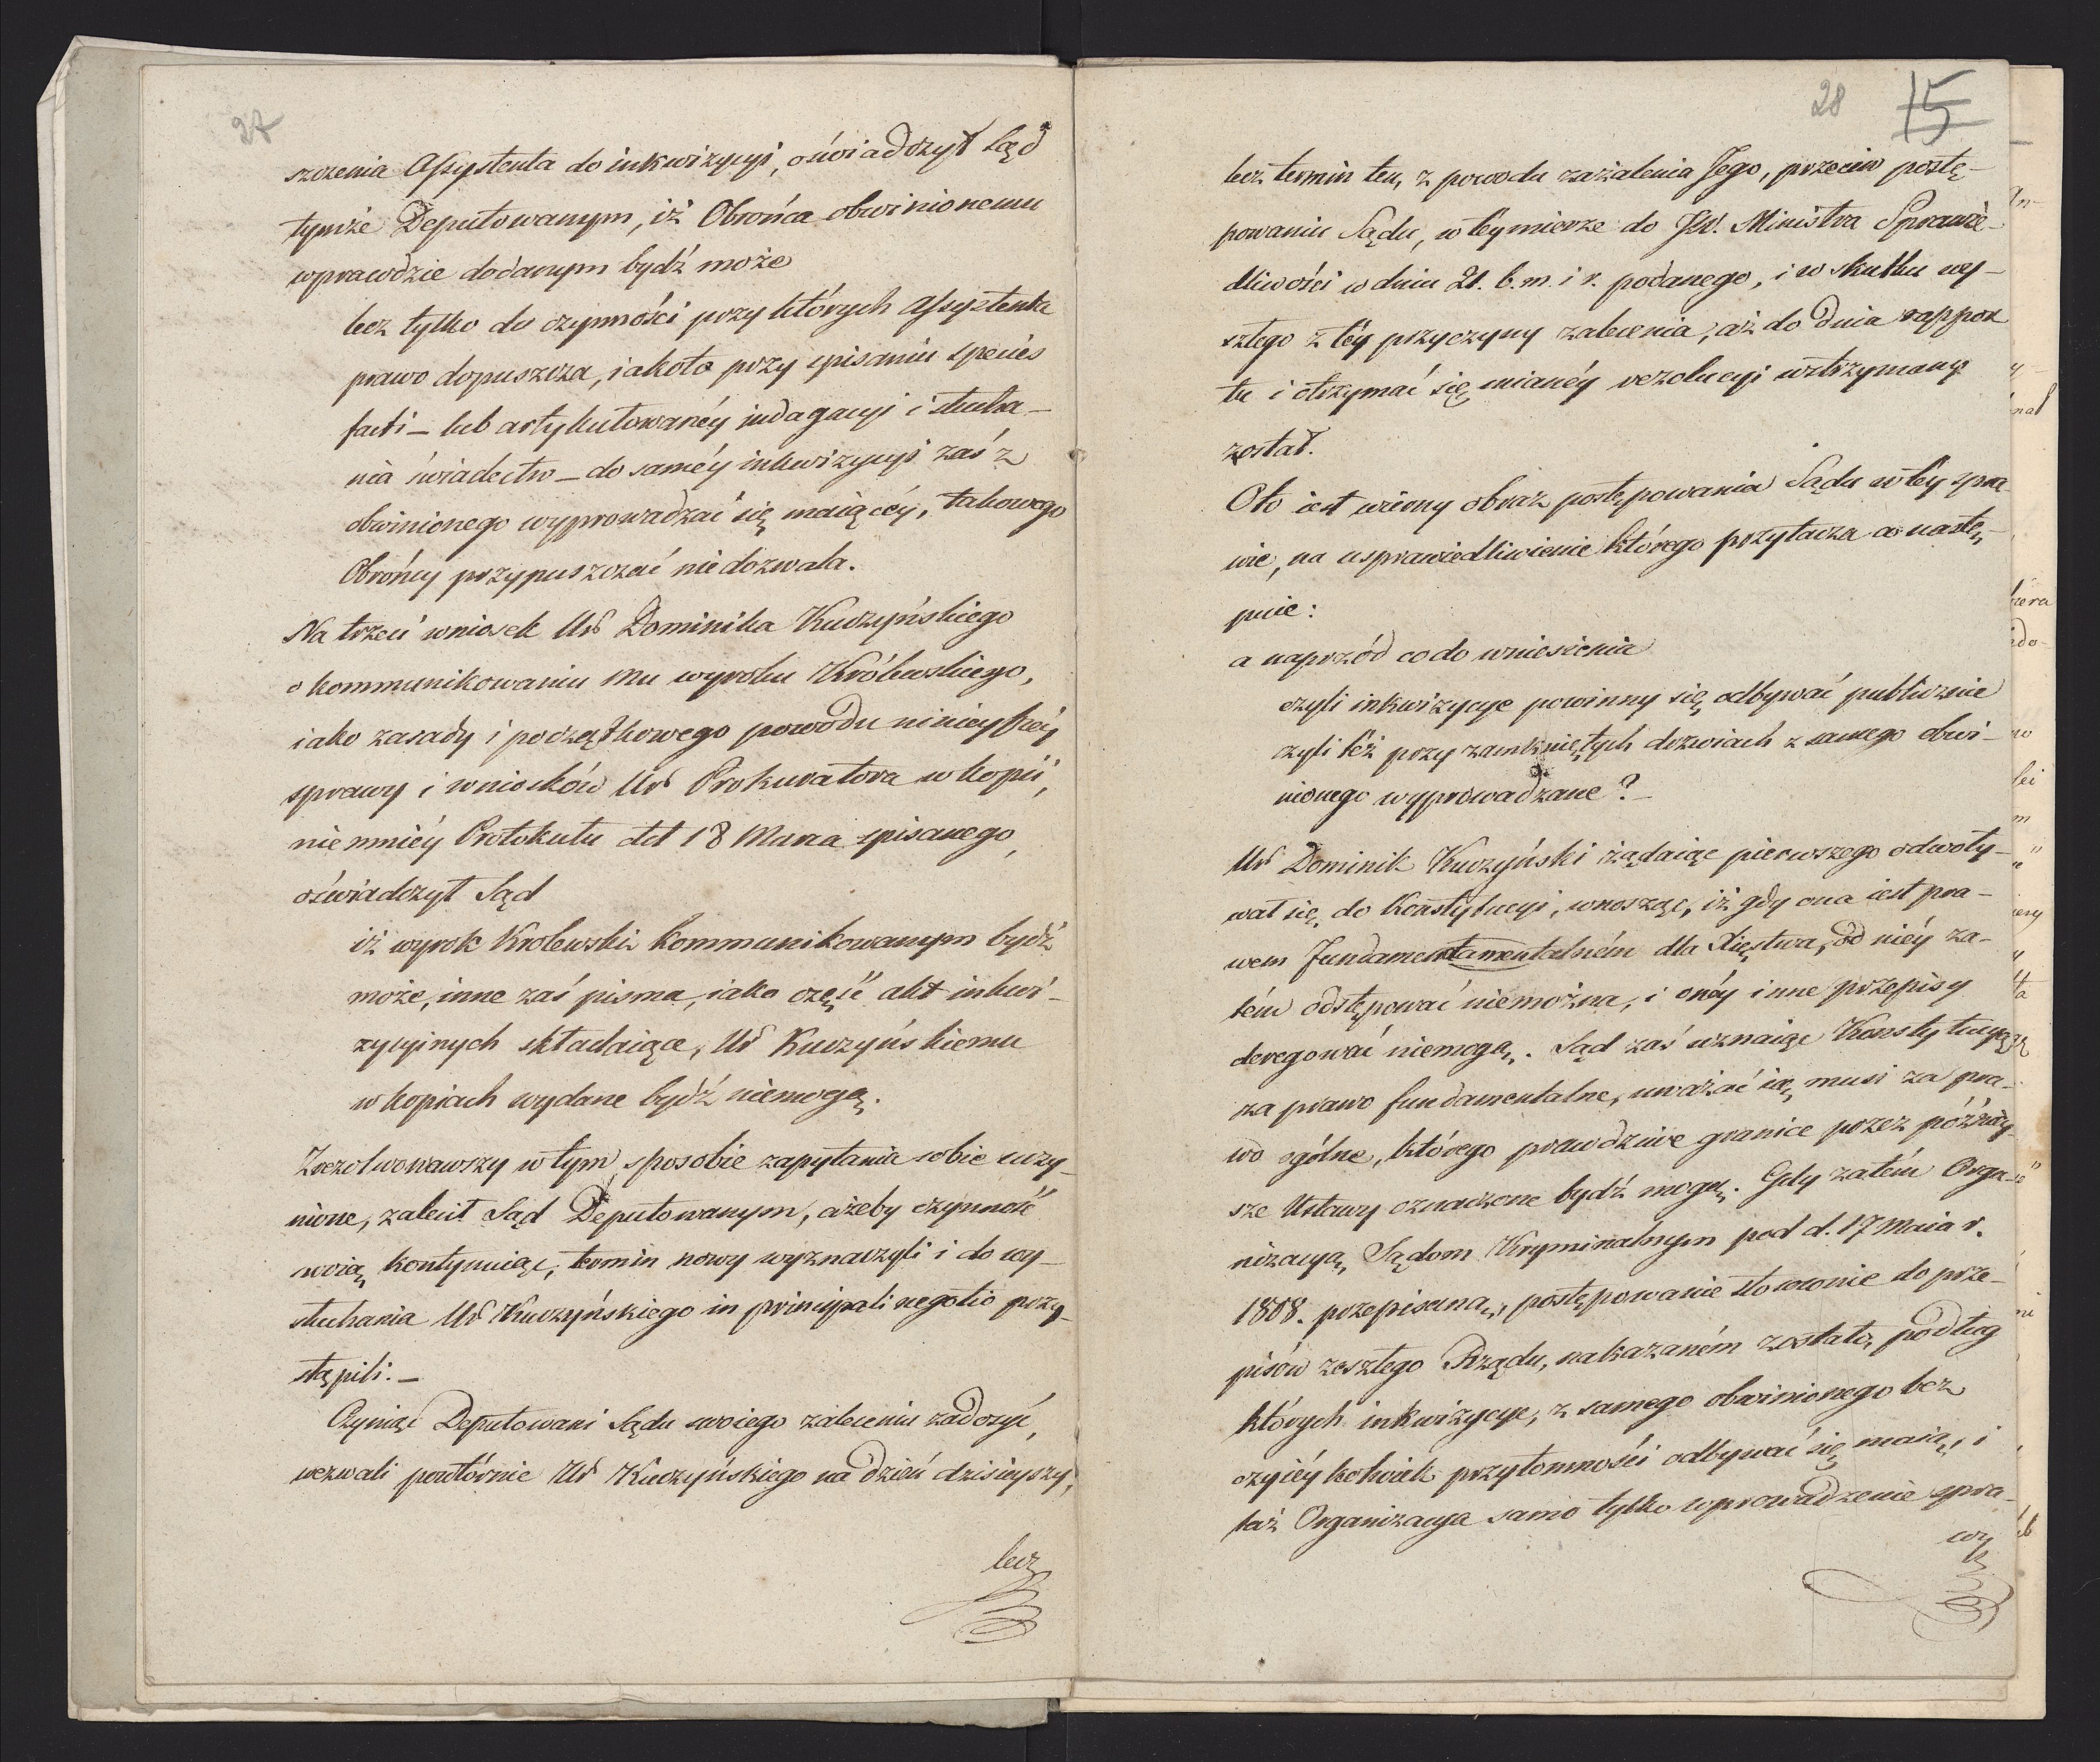 27
szczenia Assystenta do inkwizycyi, oświadczył Sąd
tymże Deputowanym, iż Obrońca obwinionemu
wprawdzie dodanym bydź może
lecz tylko do czynności przy których assystenta
prawo dopuszcza, iakoto przy spisaniu species
facti – lub artykułowanéy indagacyi i słucha–
nia świadectw – do saméy inkwizycyi zaś z
obwinionego wyprowadzać się maiącéy, takowego
Obrońcy przypuszczać niedozwala.
Na trzeci wniosek Ur Dominika Kuczyńskiego
o kommunikowaniu mu wyroku Królewskiego,
iako zasady i początkowego powodu ninieyszéy
sprawy i wniosków Ur Prokuratora w kopii,
niemniéy Protokułu dtt 18 Marca spisanego,
oświadczył Sąd
iż wyrok Krolewski kommunikowanym bydź
może, inne zaś pisma, iako część akt inkwi–
zycyinych składaiące, Ur Kuczyńskiemu
w kopiach wydane bydź niemogą.
Zrezolwowawszy w tym sposobie zapytania sobie uczy–
nione, zalecił Sąd Deputowanym, ażeby czynność
swoią kontynuiąc, termin nowy wyznaczyli i do wy–
słuchania Ur Kuczyńskiego in principali negotio przy–
stąpili. –
Czyniąc Deputowani Sądu swoiego zaleceniu zadosyć,
wezwali powtórnie Ur Kuczyńskiego na dzień dzisieyszy,
lecz
28 15
lecz termin ten, z powodu zażalenia Jego, przeciw postę–
powaniu Sądu, w téy mierze do JW. Ministra Sprawie–
dliwości w dniu 21. b. m. i r. podanego, i w skutku wy–
szłego z téy przyczyny zalecenia, aż do dnia rappor
tu i otrzymać się mianéy rezolucyi wstrzymany
został.
Oto iest wierny obraz postępowania Sądu w téy spra–
wie, na usprawiedliwienie którego przytacza co nastę–
puie:
a naprzód co do wniesienia
czyli inkwizycye powinny się odbywać publicznie
czyli też przy zamkniętych drzwiach z samego obwi–
nionego wyprowadzane? –
Ur Dominik Kuczyński żądaiąc pierwszego odwoły–
wał się do Konstytucyi, wnosząc, iż gdy ona iest pra–
wem fundamentamentalném dla Xięstwa, od niéy za–
tém odstępować niemożna, i onéy inne przepisy
deregować niemogą. Sąd zaś uznaiąc Konstytucyą
za prawo fundamentalne, uważać ią musi za pra–
wo ogólne, którego prawdziwe granice przez późniey–
sze Ustawy oznaczone bydź mogą. Gdy zatém Orga–
nizacyą, Sądom Kryminalnym pod d. 17 Maia r.
1808. przepisaną, postępowanie stosownie do prze–
pisów zeszłego Rządu, nakazaném zostało, podług
których inkwizycye, z samego obwinionego bez
czyiéykolwiek przytomności odbywać się maią, i
taż Organizacya samo tylko wprowadzenie spra–
wy